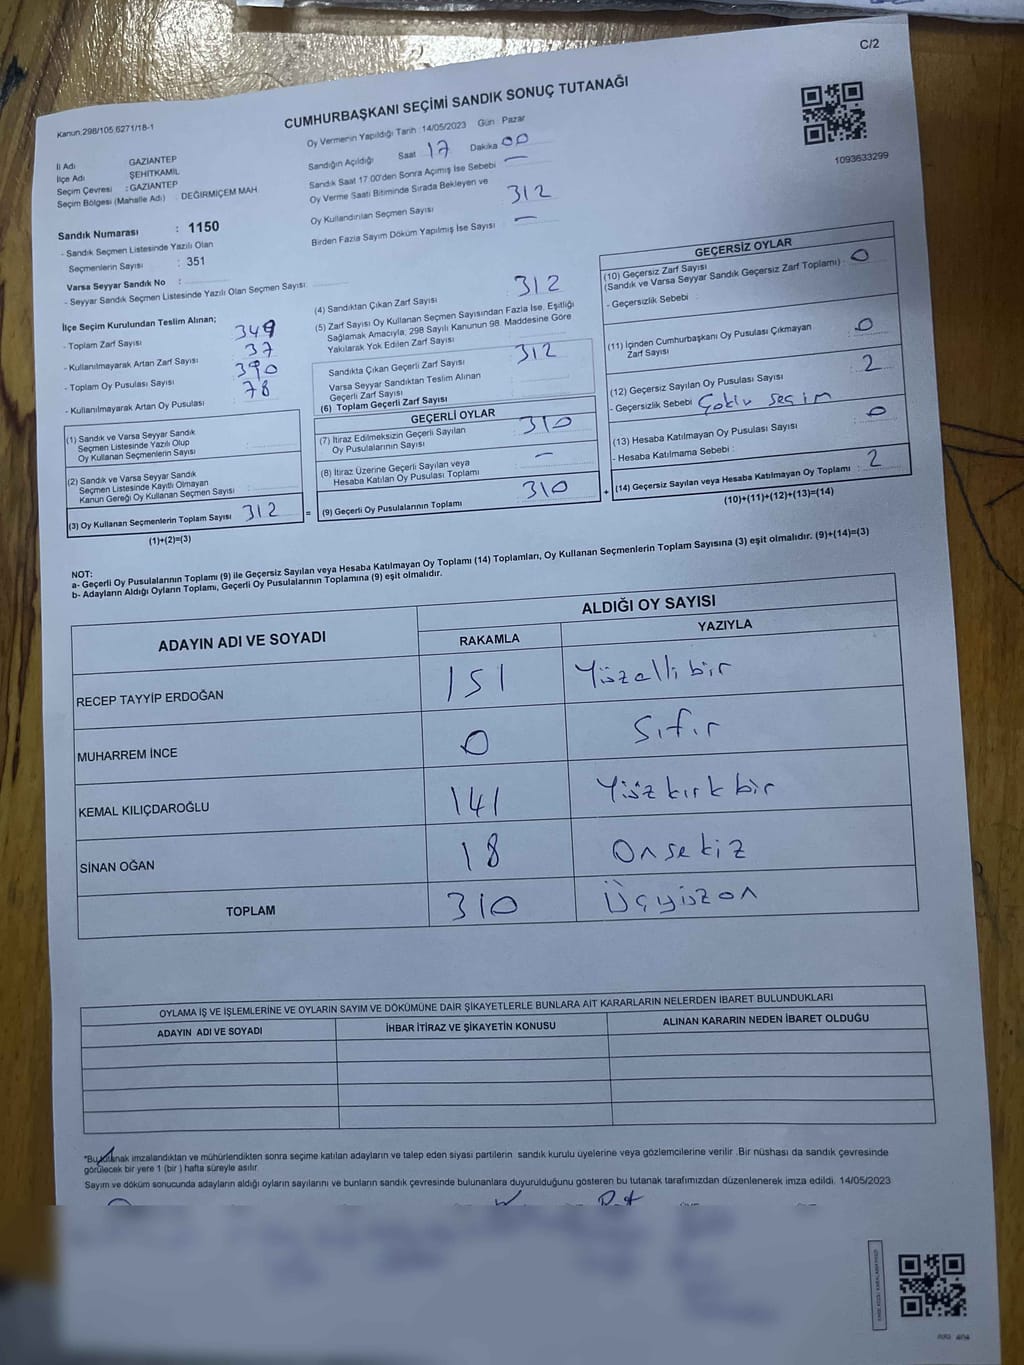 C/2
Kanun,298/105,6271/18-1
CUMHURBAŞKANI SEÇİMİ SANDIK SONUÇ TUTANAĞI
Oy Vermenin Yapıldığı Tarih : 14/05/2023 Gün : Pazar
İl Adı GAZIANTEP
İlçe Adı ŞEHİTKAMİL
Seçim Çevresi : GAZIANTEP
Seçim Bölgesi (Mahalle Adı) : DEĞIRMIÇEM MAH
Sandığın Açıldığı Saat 17 Dakika 00
Sandık Saat 17.00'den Sonra Açılmış İse Sebebi —
Oy Verme Saati Bitiminde Sırada Bekleyen ve
Oy Kullandırılan Seçmen Sayısı 312
Birden Fazla Sayım Döküm Yapılmış İse Sayısı : —
1093633299
Sandık Numarası : 1150
- Sandık Seçmen Listesinde Yazılı Olan
Seçmenlerin Sayısı : 351
Varsa Seyyar Sandık No :
- Seyyar Sandık Seçmen Listesinde Yazılı Olan Seçmen Sayısı:
İlçe Seçim Kurulundan Teslim Alınan;
- Toplam Zarf Sayısı 349
- Kullanılmayarak Artan Zarf Sayısı 37
- Toplam Oy Pusulası Sayısı 390
- Kullanılmayarak Artan Oy Pusulası 78
(1) Sandık ve Varsa Seyyar Sandık
Seçmen Listesinde Yazılı Olup
Oy Kullanan Seçmenlerin Sayısı
(2) Sandık ve Varsa Seyyar Sandık
Seçmen Listesinde Kayıtlı Olmayan
Kanun Gereği Oy Kullanan Seçmen Sayısı
(3) Oy Kullanan Seçmenlerin Toplam Sayısı 312
(1)+(2)=(3)
(4) Sandıktan Çıkan Zarf Sayısı 312
(5) Zarf Sayısı Oy Kullanan Seçmen Sayısından Fazla İse, Eşitliği
Sağlamak Amacıyla, 298 Sayılı Kanunun 98. Maddesine Göre
Yakılarak Yok Edilen Zarf Sayısı
Sandıkta Çıkan Geçerli Zarf Sayısı 312
Varsa Seyyar Sandıktan Teslim Alınan
Geçerli Zarf Sayısı
(6) Toplam Geçerli Zarf Sayısı
GEÇERLİ OYLAR
(7) İtiraz Edilmeksizin Geçerli Sayılan
Oy Pusulalarının Sayısı 310
(8) İtiraz Üzerine Geçerli Sayılan veya
Hesaba Katılan Oy Pusulası Toplamı —
= (9) Geçerli Oy Pusulalarının Toplamı 310
GEÇERSİZ OYLAR
(10) Geçersiz Zarf Sayısı
(Sandık ve Varsa Seyyar Sandık Geçersiz Zarf Toplamı) : 0
- Geçersizlik Sebebi :
(11) İçinden Cumhurbaşkanı Oy Pusulası Çıkmayan
Zarf Sayısı 0
(12) Geçersiz Sayılan Oy Pusulası Sayısı 2
- Geçersizlik Sebebi Çoklu seçim
(13) Hesaba Katılmayan Oy Pusulası Sayısı 0
- Hesaba Katılmama Sebebi :
+ (14) Geçersiz Sayılan veya Hesaba Katılmayan Oy Toplamı 2
(10)+(11)+(12)+(13)=(14)
NOT:
a- Geçerli Oy Pusulalarının Toplamı (9) ile Geçersiz Sayılan veya Hesaba Katılmayan Oy Toplamı (14) Toplamları, Oy Kullanan Seçmenlerin Toplam Sayısına (3) eşit olmalıdır. (9)+(14)=(3)
b- Adayların Aldığı Oyların Toplamı, Geçerli Oy Pusulalarının Toplamına (9) eşit olmalıdır.
ADAYIN ADI VE SOYADI ALDIĞI OY SAYISI
RAKAMLA YAZIYLA
RECEP TAYYİP ERDOĞAN 151 Yüzelli bir
MUHARREM İNCE 0 Sıfır
KEMAL KILIÇDAROĞLU 141 Yüz kırk bir
SİNAN OĞAN 18 Onsekiz
TOPLAM 310 Üçyüzon
OYLAMA İŞ VE İŞLEMLERİNE VE OYLARIN SAYIM VE DÖKÜMÜNE DAİR ŞİKAYETLERLE BUNLARA AİT KARARLARIN NELERDEN İBARET BULUNDUKLARI
ADAYIN ADI VE SOYADI İHBAR İTİRAZ VE ŞİKAYETİN KONUSU ALINAN KARARIN NEDEN İBARET OLDUĞU
*Bu tutanak imzalandıktan ve mühürlendikten sonra seçime katılan adayların ve talep eden siyasi partilerin sandık kurulu üyelerine veya gözlemcilerine verilir .Bir nüshası da sandık çevresinde
görülecek bir yere 1 (bir ) hafta süreyle asılır.
Sayım ve döküm sonucunda adayların aldığı oyların sayılarını ve bunların sandık çevresinde bulunanlara duyurulduğunu gösteren bu tutanak tarafımızdan düzenlenerek imza edildi. 14/05/2023